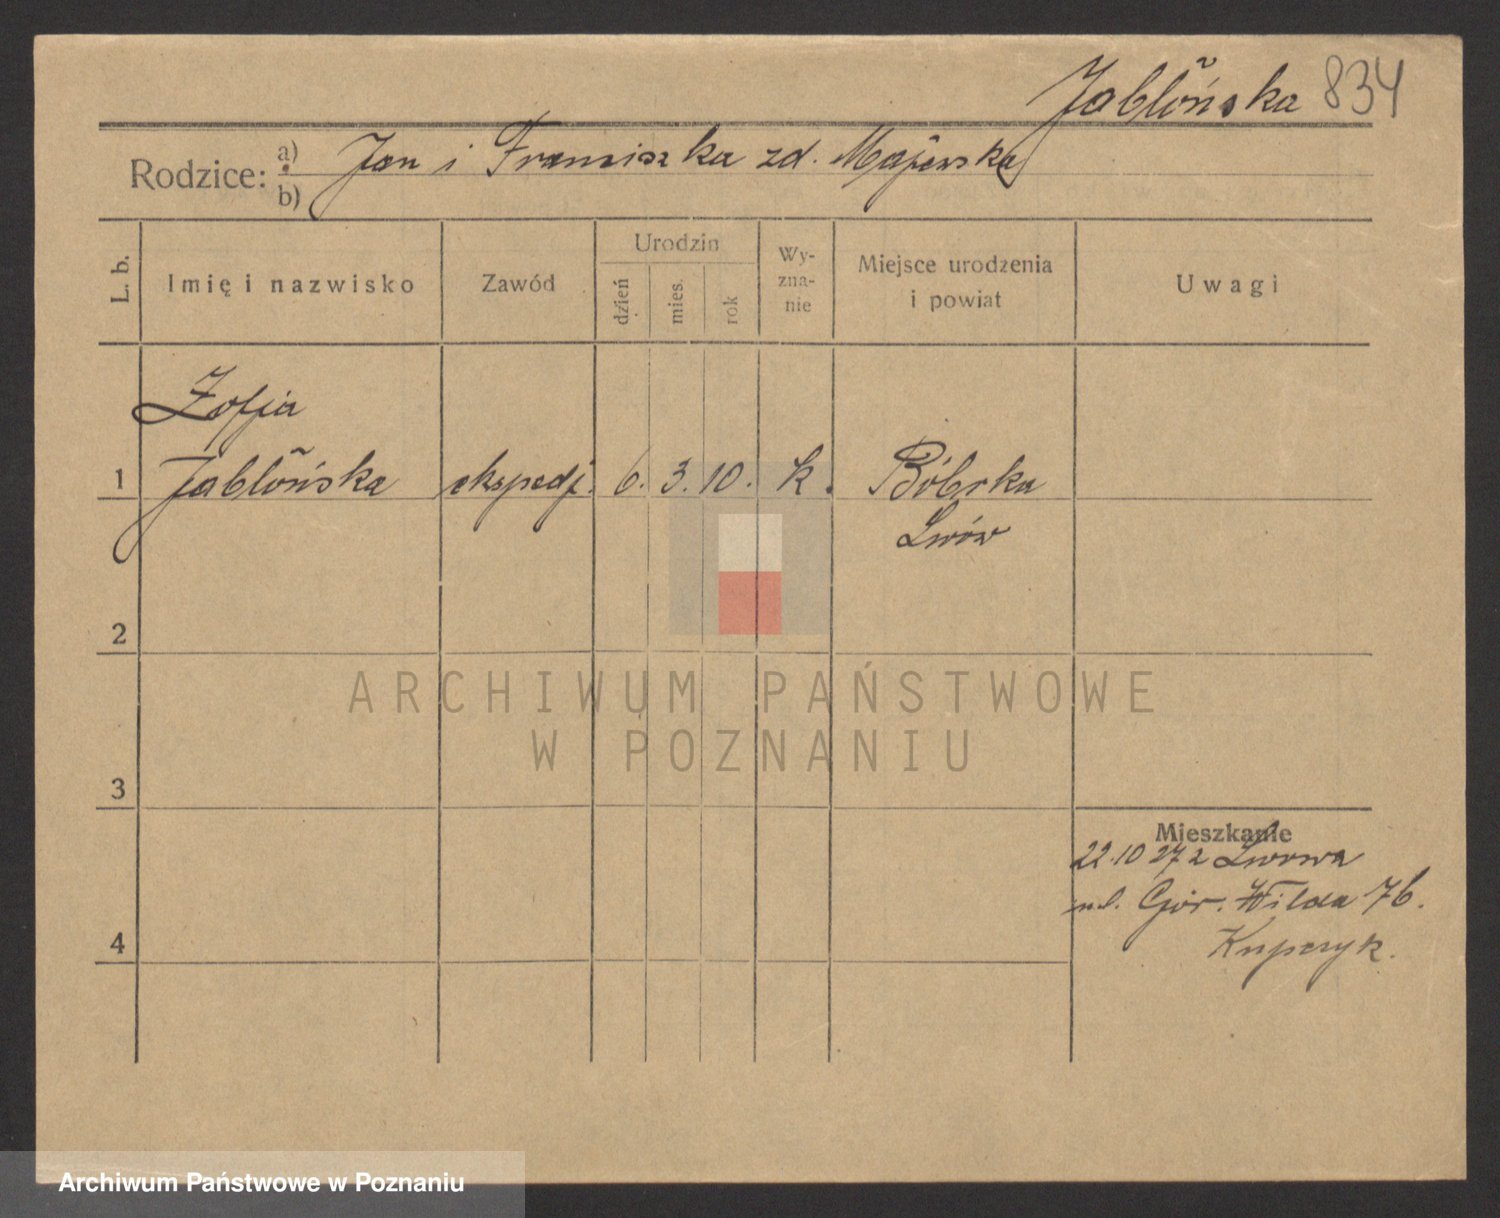 Jabłońska 834
Rodzice: a) Jan i Franciszka zd. Majewska
b)
L. b.
Imię i nazwisko
Zawód
Urodzin
dzień
mies.
rok
Wy-
zna-
nie
Miejsce urodzenia
i powiat
Uwagi
Zofja
1 Jabłońska ekspedj. 6. 3. 10. k. Bóbrka
Lwów
2
3
4
Mieszkanie
22.10 27 z Lwowa
ul. Gór. Wilda 76.
Kupczyk.
ARCHIWUM PAŃSTWOWE
W POZNANIU
Archiwum Państwowe w Poznaniu